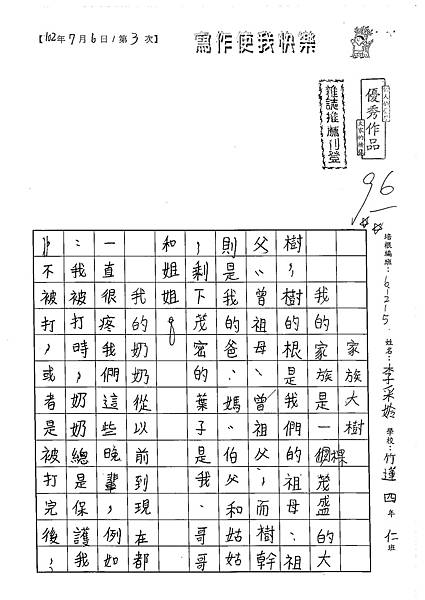 【102年7月6日/第3次】
寫作使我快樂
優秀作品
雜誌推薦刊登
96
培根編班：61215 姓名：李采姈 學校：竹蓮 四年 仁班
家族大樹
我的家族是一棵茂盛的大
樹，樹的根是我們的祖母、祖
父、曾祖母、曾祖父，而樹幹
則是我的爸、媽、伯父、和姑姑
，剩下茂密的葉子是我、哥哥
和姐姐。
我的奶奶從以前到現在都
一直很疼我們這些晚輩，例如
：我被打時，奶奶總是保護我
，不被打，或者是被打完後，